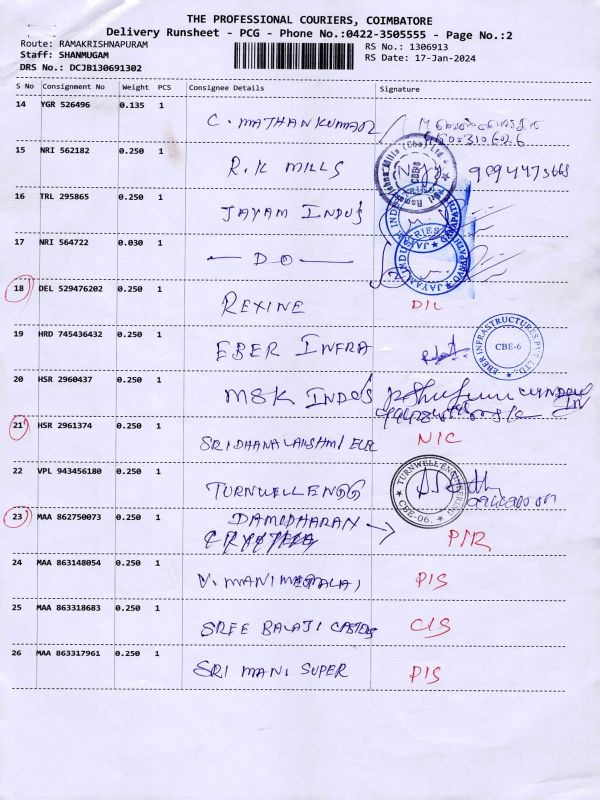 THE PROFESSIONAL COURIERS, COIMBATORE
Delivery Runsheet - PCG - Phone No.:0422-3505555 - Page No.:2
Route: RAMAKRISHNAPURAM
RS No.: 1306913
Staff: SHANMUGAM
RS Date: 17-Jan-2024
DRS No.: DCJB130691302
S No Consignment No Weight PCS Consignee Details Signature
14 YGR 526496 0.135 1 C. MATHANKUMAR
15 NRI 562182 0.250 1 R.K MILLS
16 TRL 295865 0.250 1 JAYAM INDUS
17 NRI 564722 0.030 1 — DO —
JAYAM INDUSTRIES
18 DEL 529476202 0.250 1 REXINE DIL
19 HRD 745436432 0.250 1 EBER INFRA
EBER INFRASTRUCTURES PVT LTD. CBE-6
20 HSR 2960437 0.250 1 MSK INDUS
21 HSR 2961374 0.250 1 SRIDHANALAKSHMI ELE NIC
22 VPL 943456180 0.250 1 TURNWELL ENGG
TURNWELL ENGINEERING CBE-06.
23 MAA 862750073 0.250 1 DAMODHARAN PIR
24 MAA 863148054 0.250 1 V. MANIMEGALAI PIS
25 MAA 863318683 0.250 1 SREE BALAJI CIS
26 MAA 863317961 0.250 1 SRI MANI SUPER PIS